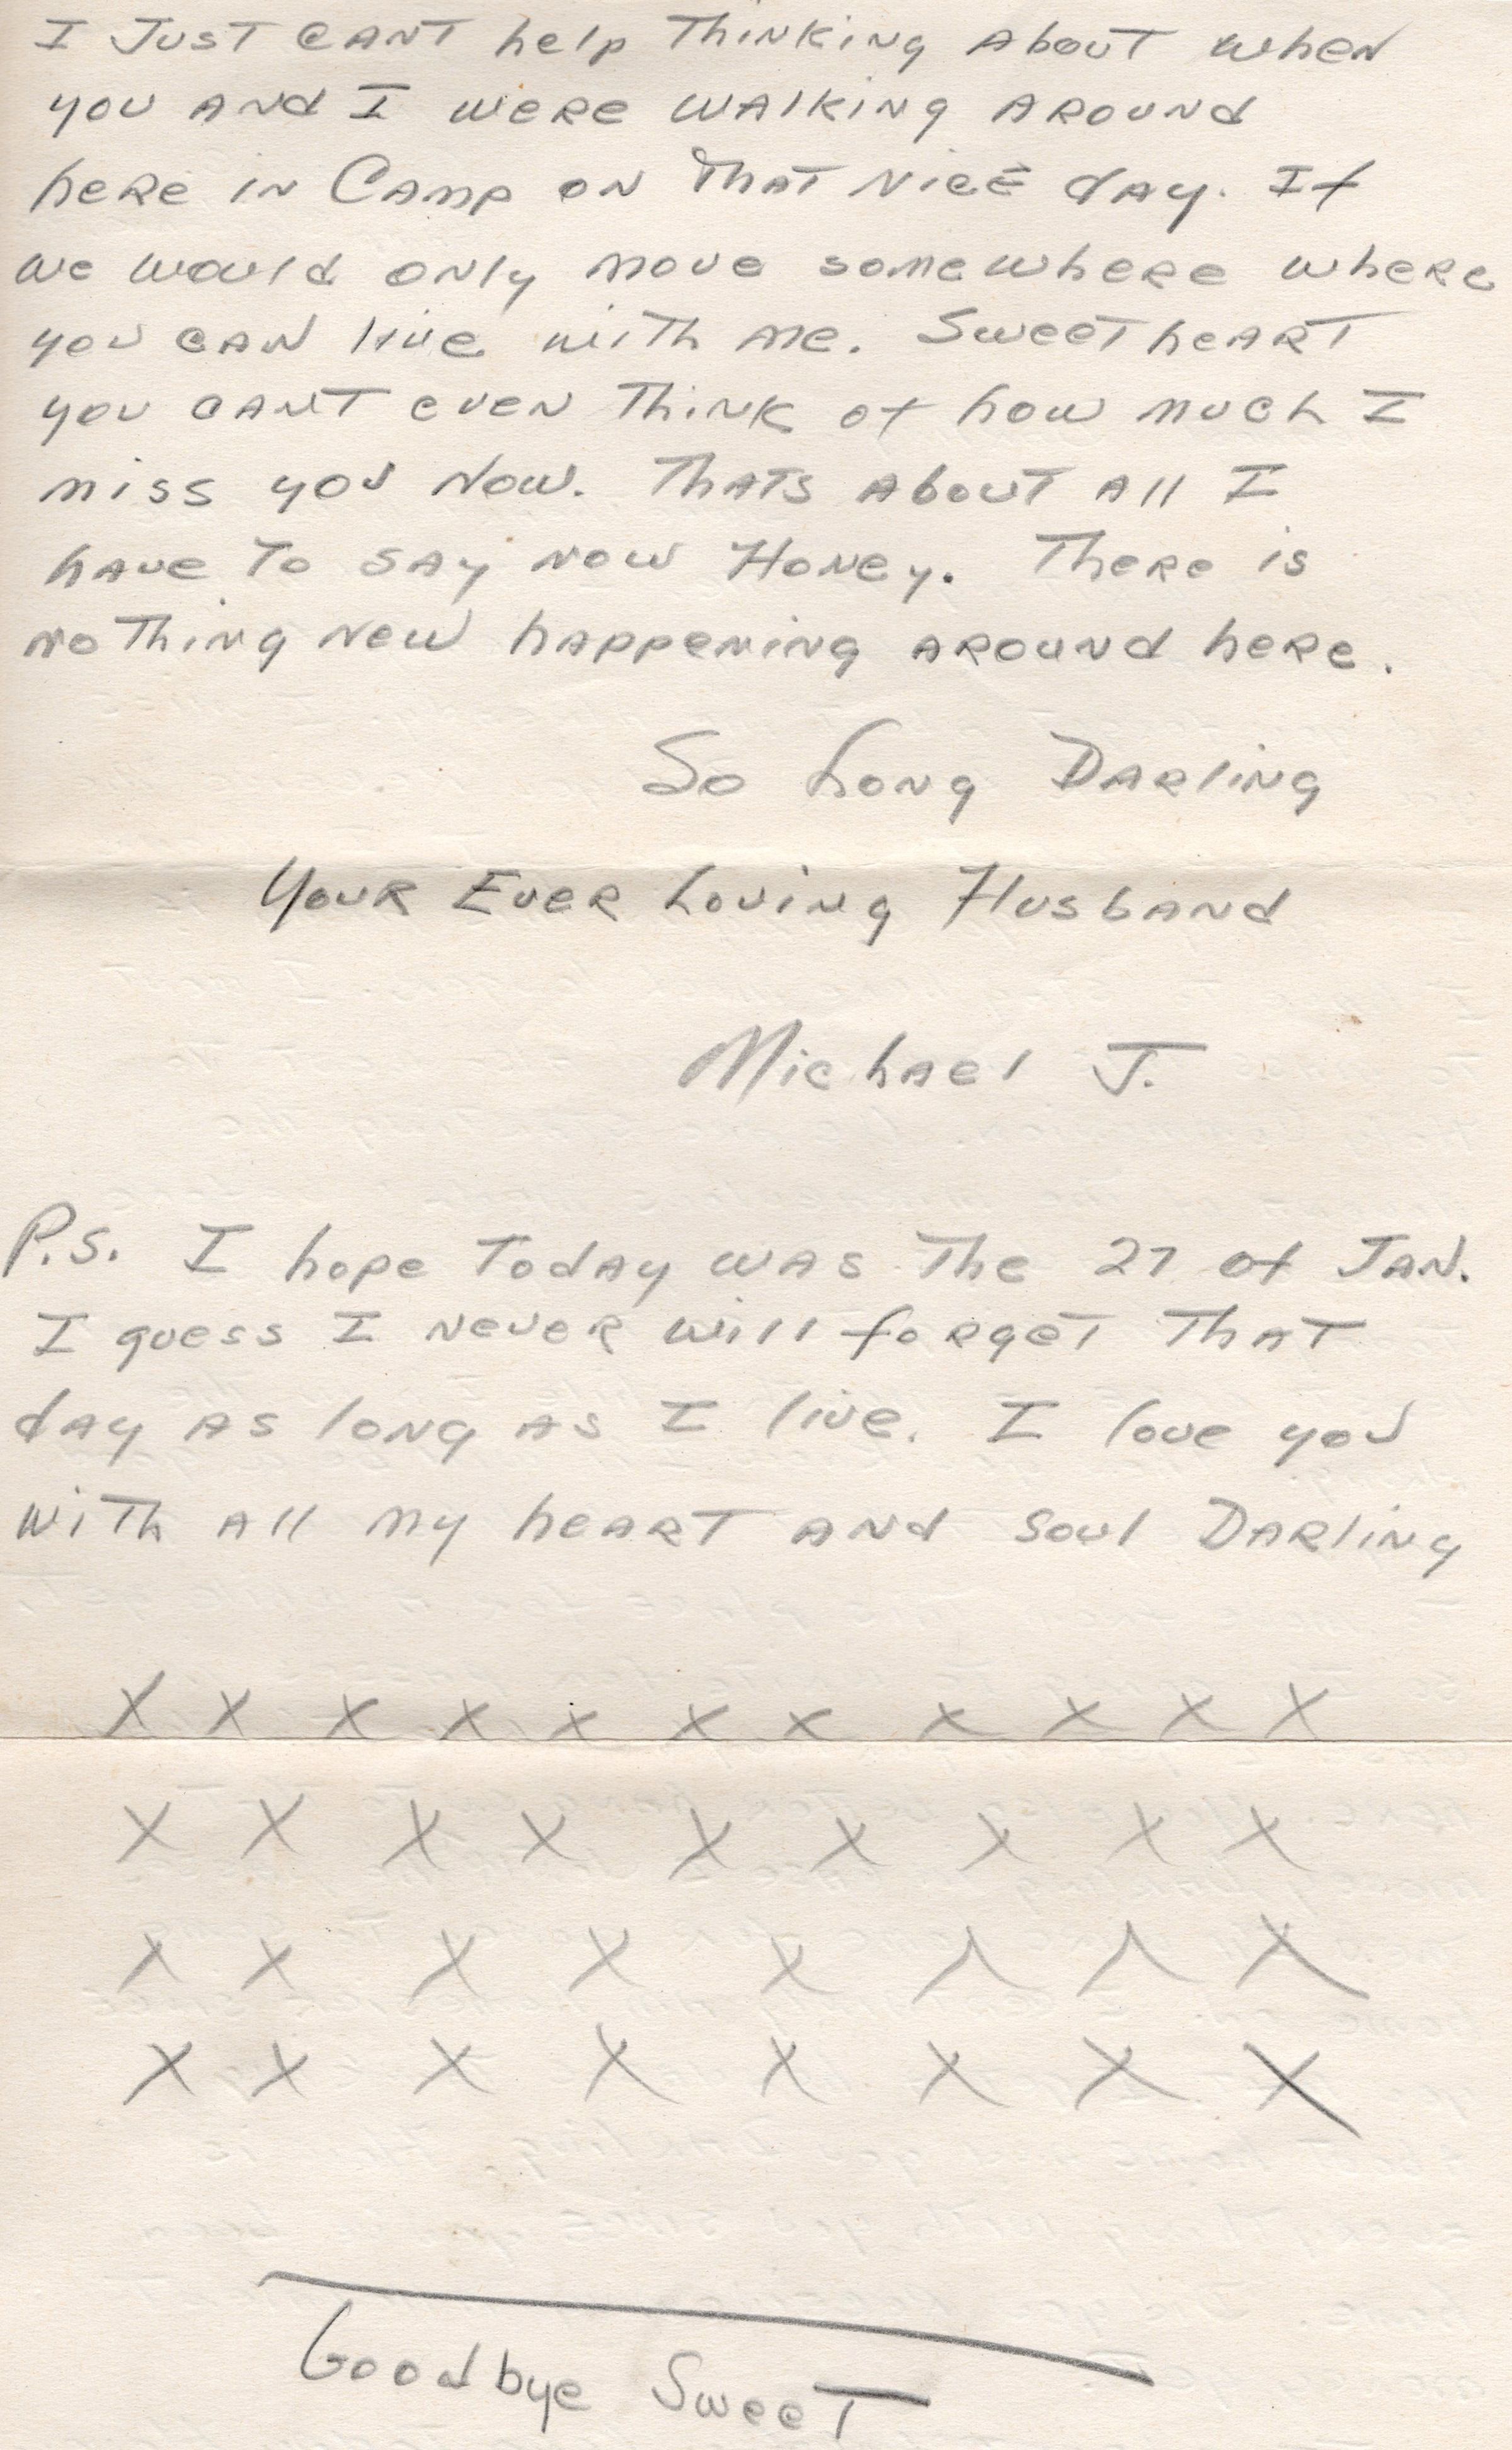 I Just cant help thinking about when
you and I were walking around
here in Camp on that nice day. If
we would only move somewhere where
you can live with me. Sweetheart
you cant even think of how much I
miss you now. Thats about all I
have to say now Honey. There is
nothing new happening around here.
So Long Darling
Your Ever Loving Husband
Michael J.
P.S. I hope today was the 27 of Jan.
I guess I never will forget that
day as long as I live. I love you
with all my heart and soul Darling
X X X X X X X X X X X
X X X X X X X X X
X X X X X X X X
X X X X X X X X
Goodbye Sweet